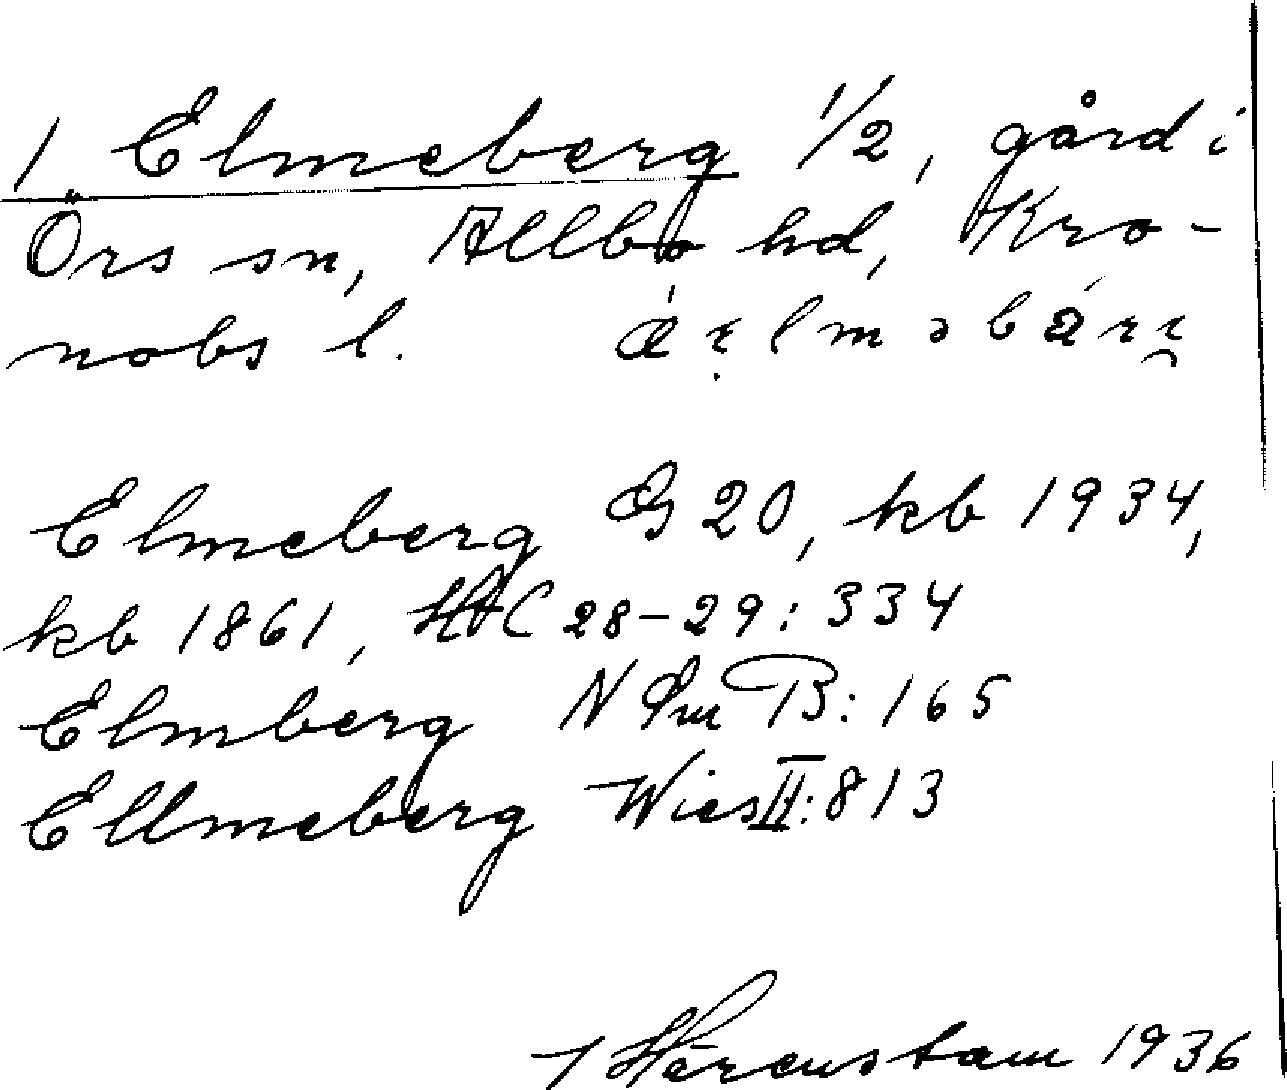 1 Elmeberg 1/2, gård i
Örs sn, Allbo hd, Kro-
nobs l.
Elmeberg G 20, kb 1934,
kb 1861, HAC 28-29:334
Elmberg N Sm B:165
Ellmeberg Wies II:813
Härenstam 1936